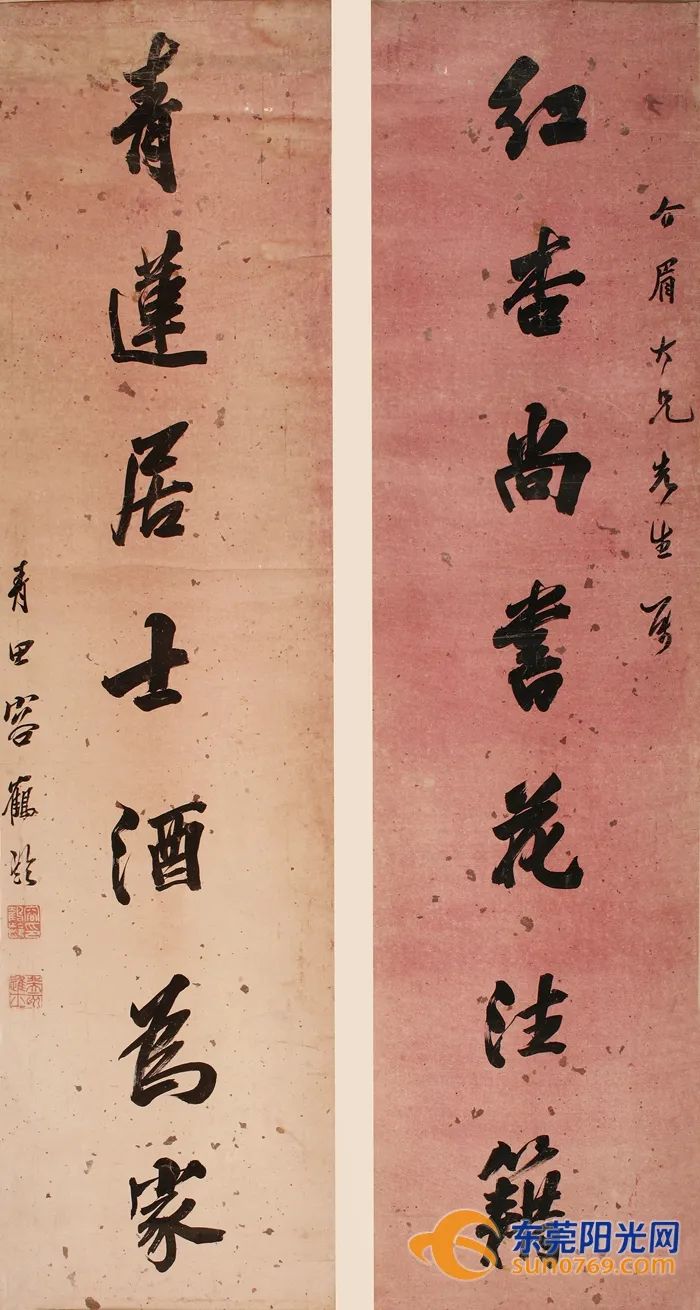 介眉大兄先生属
红杏尚書花注籍
青蓮居士酒為家
青田容鶴齡
东莞阳光网
sun0769.com